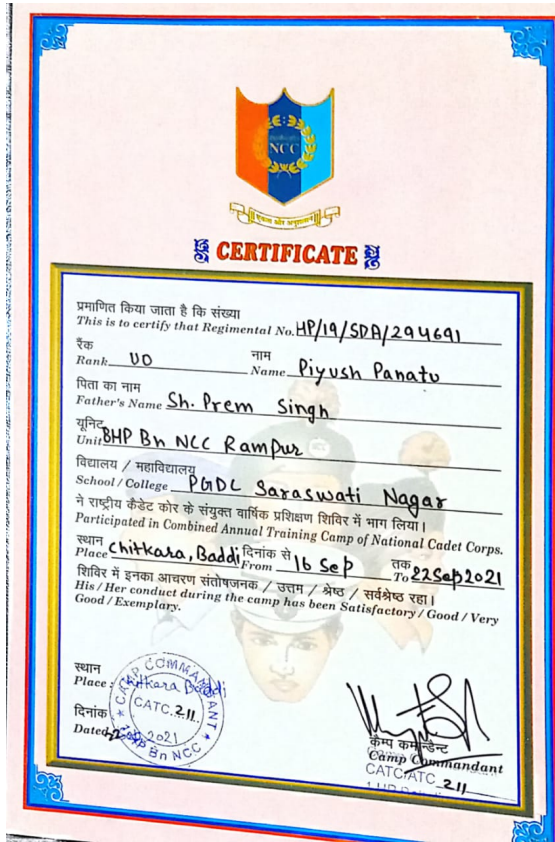 NCC
एकता और अनुशासन
CERTIFICATE
प्रमाणित किया जाता है कि संख्या
This is to certify that Regimental No. HP/19/SDA/294691
रैंक नाम
Rank UO Name Piyush Panatu
पिता का नाम
Father's Name Sh. Prem Singh
यूनिट
Unit BHP Bn NCC Rampur
विद्यालय / महाविद्यालय
School / College PGDC Saraswati Nagar
ने राष्ट्रीय कैडेट कोर के संयुक्त वार्षिक प्रशिक्षण शिविर में भाग लिया।
Participated in Combined Annual Training Camp of National Cadet Corps.
स्थान दिनांक से तक
Place Chitkara, Baddi From 16 Sep To 22 Sep 2021
शिविर में इनका आचरण संतोषजनक / उत्तम / श्रेष्ठ / सर्वश्रेष्ठ रहा।
His / Her conduct during the camp has been Satisfactory / Good / Very
Good / Exemplary.
स्थान
Place : Chitkara Baddi
दिनांक
Dated 2021
CAMP COMMANDANT
CATC. 211
Bn NCC
कैम्प कमान्डेन्ट
Camp Commandant
CATC/ATC 211